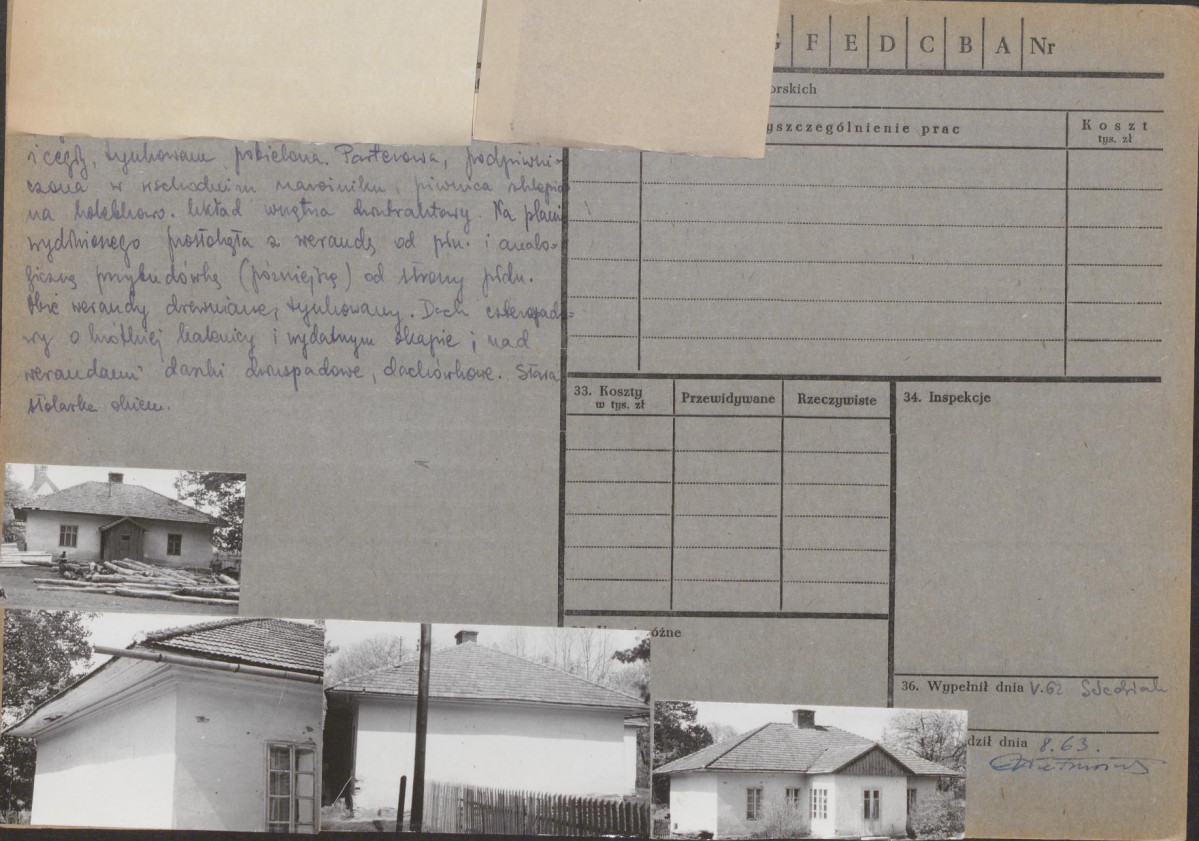 G F E D C B A Nr
orskich
yszczególnienie prac
Koszt
tys. zł
i cegły, tynkowana pobielona. Parterowa, podpiwni-
czona w wschodnim narożniku, piwnica sklepio
na kolebkowo. Układ wnętrza dwutraktowy. Na planie
wydłużonego prostokąta z werandą od płn. i analo-
giczną przybudówką (późniejszą) od strony płdn.
Obie werandy drewniane, tynkowany. Dach czterospado-
wy o krótkiej kalenicy i wydatnym okapie; nad
werandami daszki dwuspadowe, dachówkowe. Stara
stolarka okien.
33. Koszty
w tys. zł
Przewidywane
Rzeczywiste
34. Inspekcje
óżne
36. Wypełnił dnia V.62
dził dnia 8.63.